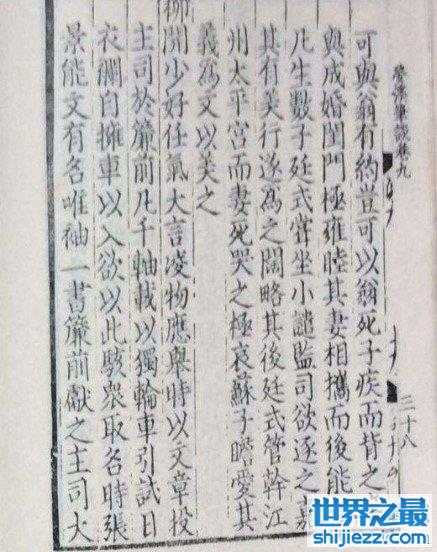 夢溪筆談卷九
三十八
可與翁有約豈可以翁死子疾而背之
與成婚閨門極雍睦其妻相攜而後能
凡生數子廷式嘗坐小譴監司欲逐之嘉
其有美行遂為之闊略其後廷式管幹江
州太平宮而妻死哭之極哀蘇子瞻愛其
義為文以美之
柳開少好任氣大言凌物應舉時以文章投
主司於簾前凡千軸載以獨輪車引試日
衣襴自擁車以入欲以此駭衆取名時張
景能文有名唯袖一書簾前獻之主司大
世界之最
shijiezz.com